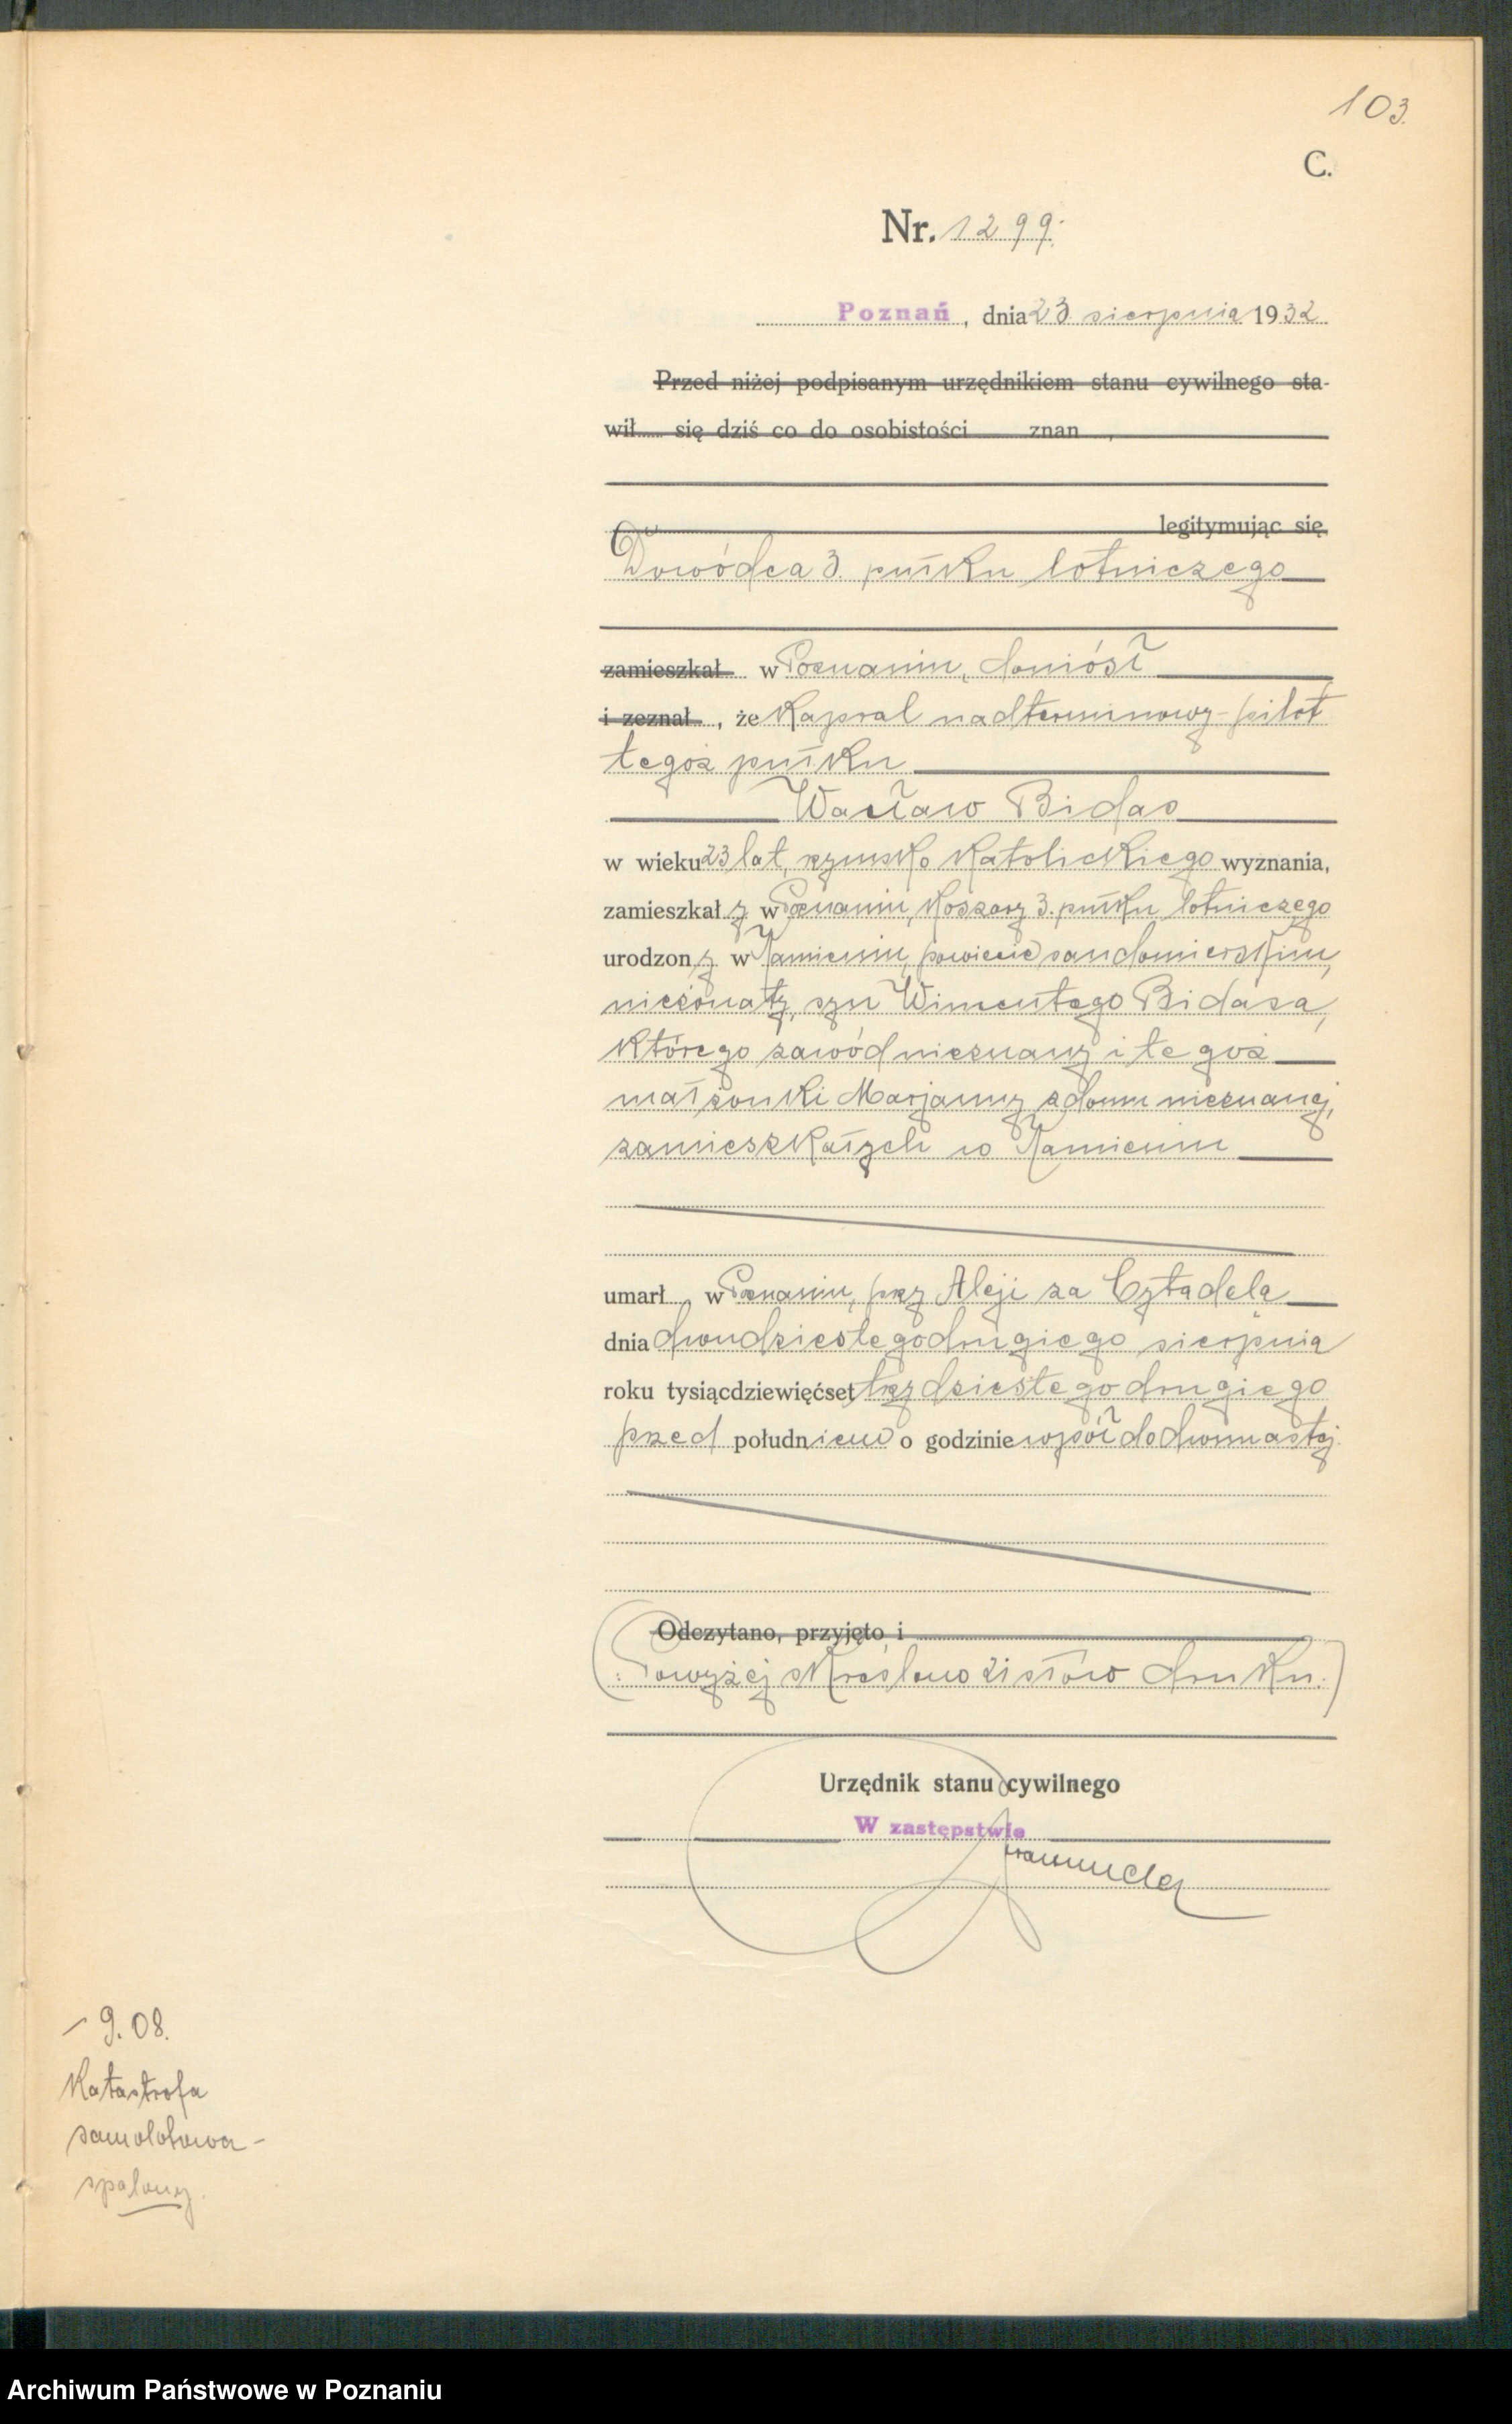 103.
C.
Nr. 1299.
Poznań, dnia 23 sierpnia 1932
Przed niżej podpisanym urzędnikiem stanu cywilnego sta-
wił się dziś co do osobistości znan ,
legitymując się
Dowódca 3. pułku lotniczego
zamieszkał w Poznaniu, doniósł
i zeznał , że Kapral nadterminowy-pilot
tegoż pułku
Wacław Bidas
w wieku 23 lat, rzymsko Katolickiego wyznania,
zamieszkały w Poznaniu, Koszary 3. pułku lotniczego
urodzony w Kamieniu, powiecie sandomierskim,
nieżonaty, syn Wincentego Bidasa,
którego zawód nieznany i tegoż
małżonki Marjanny z domu nieznanej,
zamieszkałych w Kamieniu
umarł w Poznaniu, przy Aleji za Cytadelą
dnia dwudziestegodrugiego sierpnia
roku tysiącdziewięćset trzydziestegodrugiego
przed południem o godzinie wpół do dwunastej.
Odczytano, przyjęto i
(: Powyżej skreślono 21 słów druku. )
Urzędnik stanu cywilnego
W zastępstwie
- 9.08.
Katastrofa
samolotowa -
spalony.
Archiwum Państwowe w Poznaniu